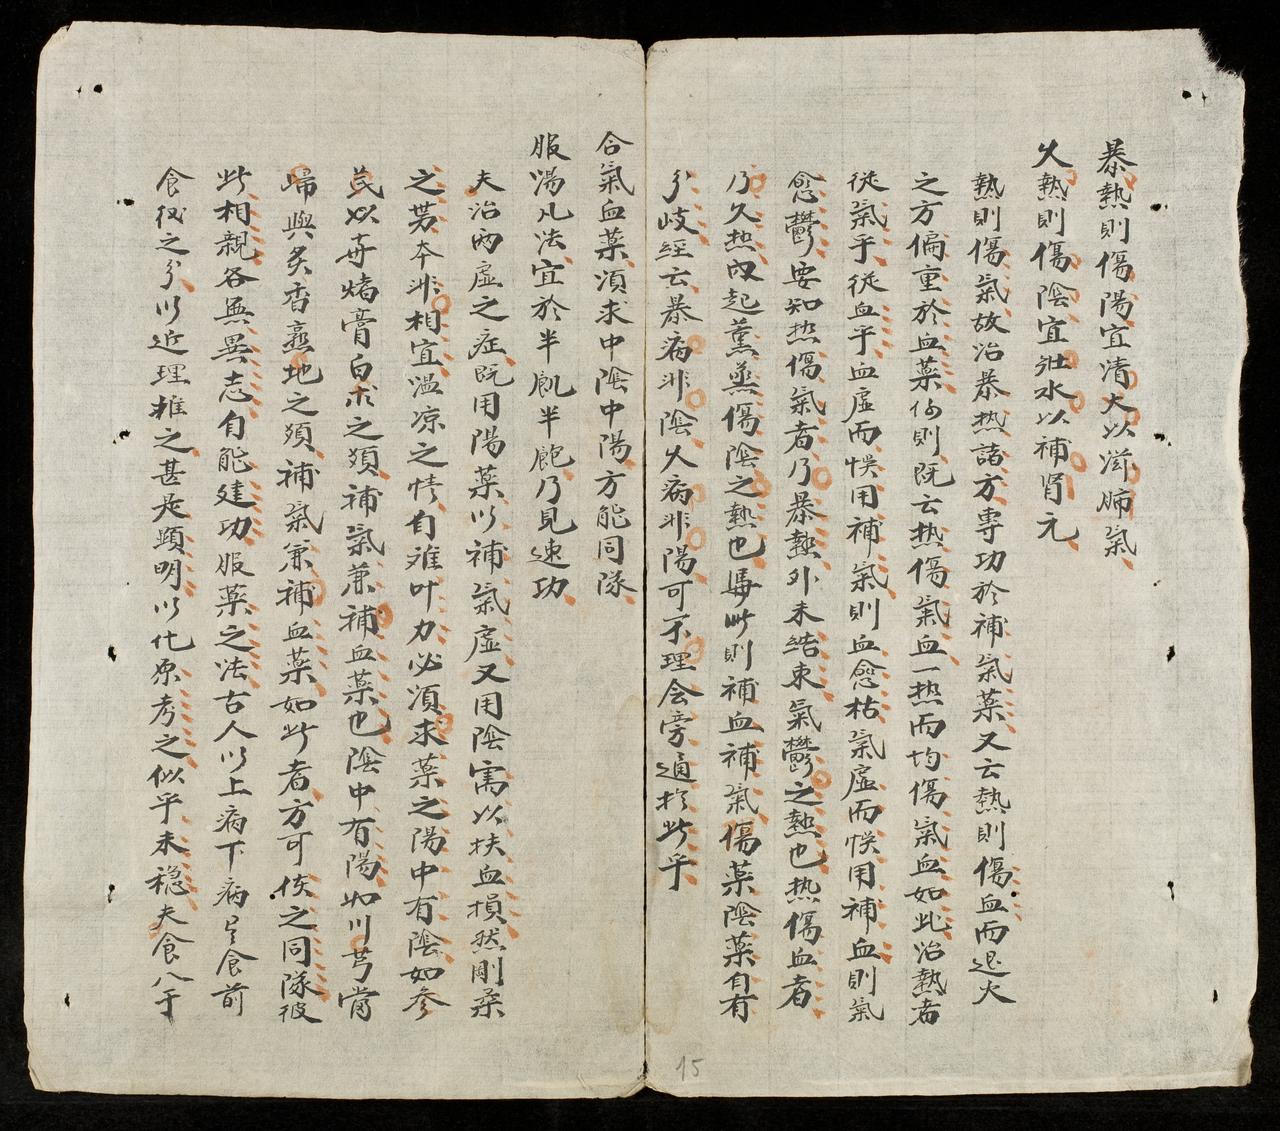 暴熱則傷陽宜清火以滋肺氣
久熱則傷陰宜壯水以補腎元
熱則傷氣故治暴热諸方專功於補氣葉又云熱則傷血而退火
之方偏重於血葉何則既云热傷氣血一热而均傷氣血如此治熱者
從氣乎從血乎血虛而悞用補氣則血愈枯氣虛而悞用補血則氣
愈鬱要知热傷氣者乃暴熱外未結束氣鬱之熱也热傷血者
乃久热内起薰蒸傷陰之熱也據此則補血補氣傷葉陰葉自有
分岐經云暴病非陰久病非陽可不理会旁通於此乎
合氣血葉湏求中陰中陽方能同隊
服湯凡法宜於半飢半飽乃見速功
夫治两虛之症既用陽葉以補氣虛又用陰需以扶血損然剛柔
之劳本非相宜温凉之情自难叶力必湏求葉之陽中有陰如參
芪以弁燒膏白朮之類補氣兼補血葉也陰中有陽如川芎當
歸與炙香熟地之類補氣兼補血葉如此者方可使之同隊彼
此相親各無異志自能建功服葉之法古人以上病下病定食前
食後之分以近理推之甚是顯明以化原考之似乎未穩夫食入于